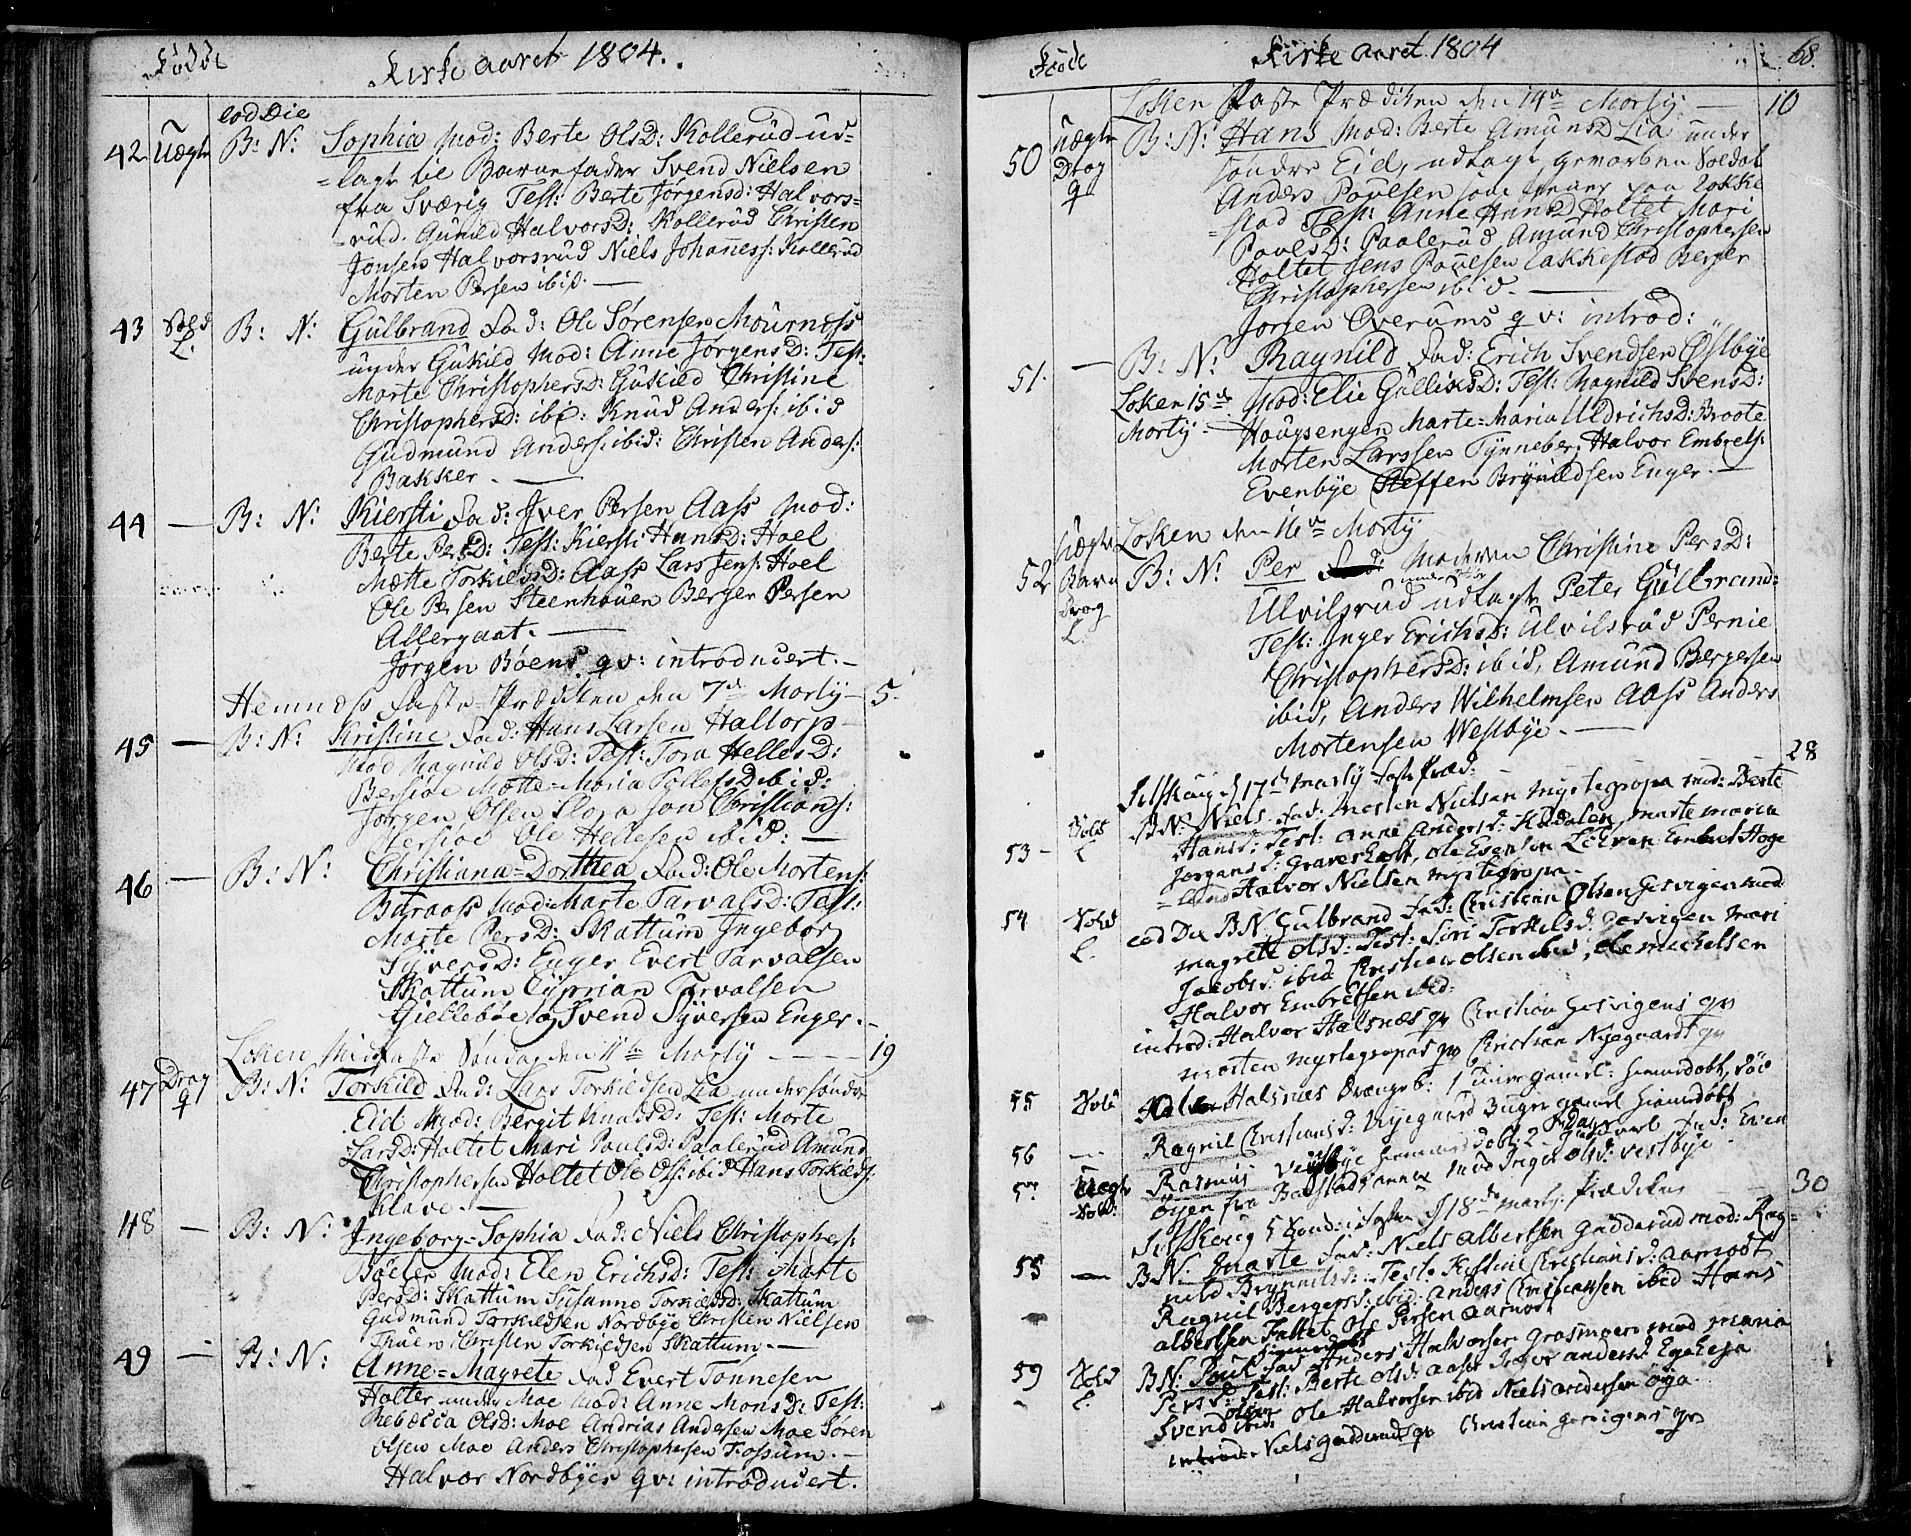 Fødde
Kirke aaret 1804.
eod Die
42 Uægte B: N: Sophia Mod: Berte OlsD: Kollerud ud=
=lagt til Barnefader Svend Nielsen
fra Sværig Test: Berte JørgensD: Halvors=
=rud. Gunild HalvorsD: Kollerud Christen
Jonsen Halvorsrud Niels Johaness: Kollerud
Morten Persen ibid. —
43 L. B: N: Gulbrand Fad: Ole Sørensen Mourness
under Guskild Mod: Anne JørgensD: Test:
Marte ChristophersD: Guskild Christine
ChristophersD: ibd: Knud Anders: ibid
Gudmund Anders: ibid: Christen Anders:
Bakker. —
44 — B: N: Kiersti Fad: Iver Persen Aass Mod:
Berte PersD: Test: Kiersti HansD: Hoel
Mætte TorkildsD: Aass Lars Jens: Hoel
Ole Persen Steenhouen Berger Persen
Allergaat. —
Jørgen Bøens qv: introducert. —
Hemness Faste-Prædiken den 7de Martij — 5.
45 — B: N: Kristine Fad: Hans Larsen Haltorp —
Mod Ragnild OlsD: Test: Tora HellesD:
Bersiøe Mætte=Maria TollefsD ibid:
Jørgen Olsen Flora Jon Christians:
Bersiøe Ole Hellesen ibid: —
46 — B: N: Christiana=Dorthea Fad: Ole Mortens:
Buraass Mod: Marte TarvalsD: Test:
Marte PersD: Skattum Ingebor
SyversD: Enger Evert Tarvalsen
Skattum Cyprian Tarvalsen
Giellebøe og Svend Syversen Enger. —
Løken Midfaste Søndag den 11te Martij — — — 19
47 Drag q B: N: Torkild Fad: Lars Torkildsen Lia under søndre
Eid Mod: Bergit KnudsD: Test: Marte
LarsD: Holtet Mari PoulsD: Paalerud Amund
Christophersen Holtet Ole Ols: ibid Hans Torkilds:
Klave. —
48 — B: N: Ingeborg=Sophia Fad: Niels Christophers:
Bøeler Mod: Elen ErichsD: Test: Marte
PersD: Skattum Susanne TorkildsD: Skattum
Gudmund Torkildsen Nordbye Christen Nielsen
Thuen Christen Torkildsen Skattum. —
49 — B: N: Anne=Magrete Fad Evert Tønnesen
Holter under Moe Mod: Anne MonsD: Test:
Rebæcca OlsD: Moe Andrias Andersen Moe Søren
Olsen Moe Anders Christophersen Fossum. —
Halvor Nordbyes qv: introducert.
Fødde
Kirke aaret 1804
68.
Løken Faste Prædiken den 14de Martij — 10
50 Uægte q B: N: Hans Mod: Berte AmundsD Lia under
søndre Eid, udlagt Soldat
Anders Povelsen som paa Løkke
=stad Test: Anne HansD Holtet Mari
PovelsD: Paalerud, Amund Christophersen
Holtet Jens Povelsen Lakkestad Berger
Christophersen ibid. —
Jørgen Overums qv: introd:
51. — B: N: Ragnild Fad: Erich Svendsen Østbye
Løken 15de Martij — Mod: Elie GulliksD: Test: Ragnild SvensD:
Hougsengen Marte=Maria UldrichsD: Broote
Morten Larssen Tynneber: Halvor Embrets:
Evenbye Steffen Brynildsen Enger. —
Løken den 16de Martij
52 Uægte Barn Drag L. B: N: Per Moderen Christine PersD:
Ulvilsrud udlagt Peter Gulbrand:
Test: Inger ErichsD: Ulvilsrud Pernie
ChristophersD: ibid, Amund Bergersen
ibid, Anders Wilhelmsen Aass Anders
Mortensen Westbye. —
28
Setskoug d 17de Martij Fast Præd:
53 – L BN: Niels Fad: Morten Nielsen Myrtegropa Mod: Berte
Hansd: Test: Anne Andersd: Kudalen, Marte Maria
Jørgensd: Gravesholt, Ole Evensen Embret Hoge
=lund Halvor Nielsen Myrtegropa.
54 L. eod Die BN. Gulbrand Fad: Christian Olsen Gersvigen Mod
Magrete Olsd: Test: Siri Torkelsd: Gersvigen Mari
Jacobsd: ibid Christian Olsen ibid, Ole Michelsen
Halvor Embretsen ibid:
introd: Halvor Halsnæs qv Christian Gersvigens qv
Morten Myrtegropas qv Christian Nyegaards qv
55 Halsnes Drængeb: gamel: hiemedøbt, død
56 — Ragnil Christiansd: Nyegaard 3 uger gamel hiemedøbt
57 Uægte Rasmus Vestbye hiemedøbt 2 Dage Fad: Even
Øyen fra Baastad annex Mod Inger Olsd: Vestbye
30
Setskoug 5 Søndag i Fasten d 18de Martij Prædiken
55 — BN. Marte Fad: Niels Albertsen Gudderud Mod: Rag=
nild Brynnilsd: Test: Kistine Christiansd: Aarnodt
Ragnil Bergersd: ibid: Anders Christiansen ibid Hans
Albertsen Tattet Ole Persen Aarnodt
59 L. BN: Poul Fad Anders Halvorsen Grasmoen Mod Maria
Persd: Test: Berte Olsd: Aass Inger Andersd Egebeja
Svend Olsen ibid Ole Halvorsen ibid Niels Andersen Øya.
introd: Niels Gudderuds qv Christian Gersvigens qv